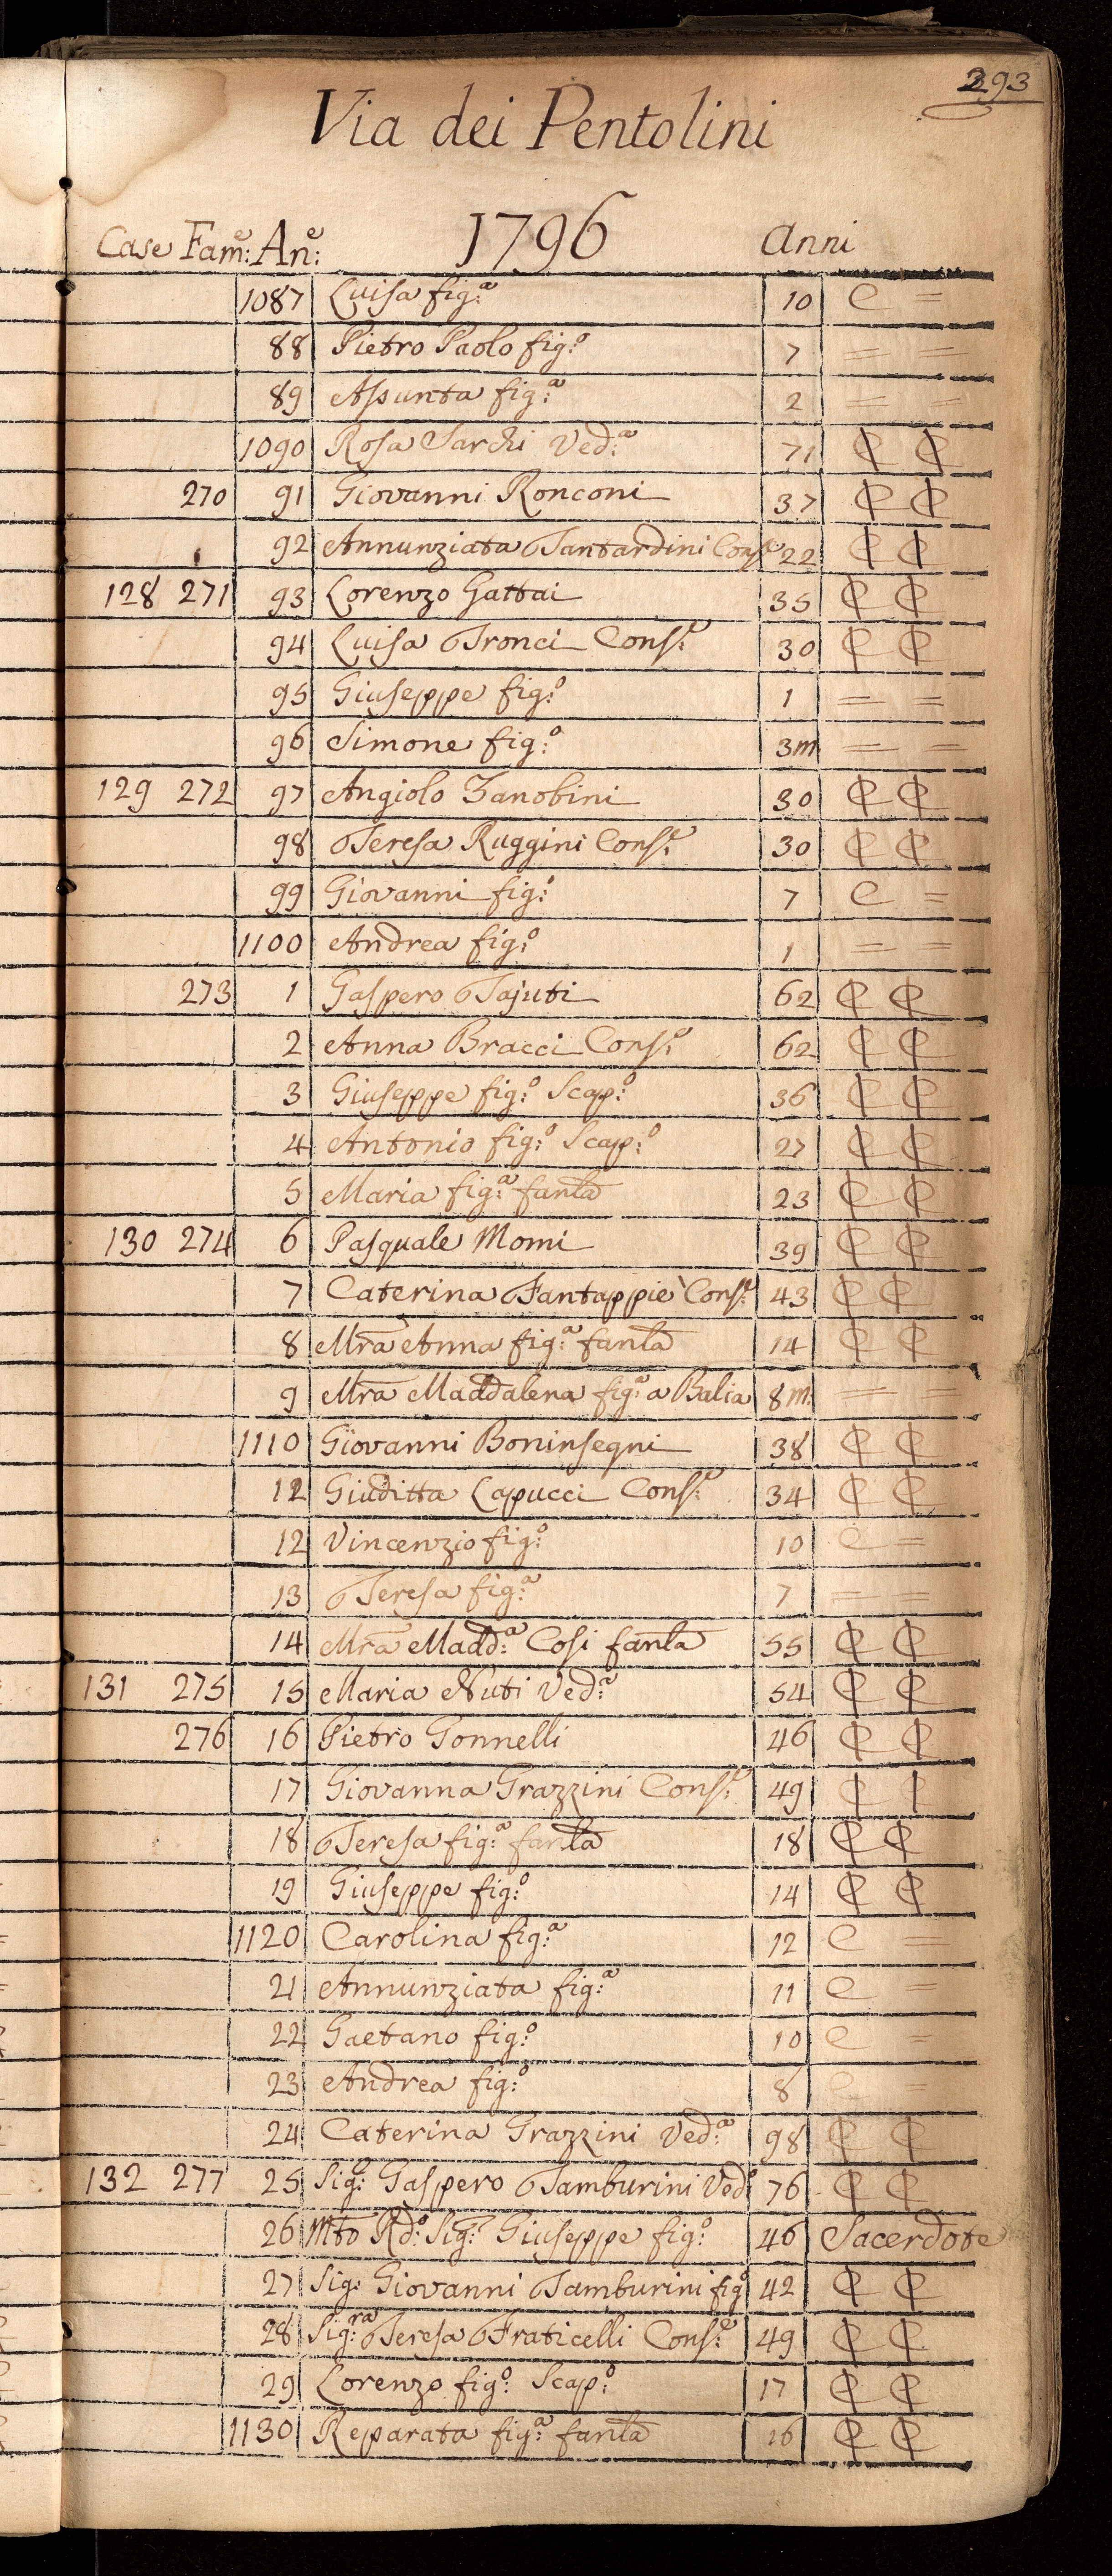 293
Via dei Pentolini
Case Fam:e An:e 1796 Anni
1087 Luisa fig:a 10 C =
88 Pietro Paolo fig:o 7 = =
89 Assunta fig:a 2 = =
1090 Rosa Sarchi Ved:a 71 ₵ ₵
270 91 Giovanni Ronconi 37 ₵ ₵
92 Annunziata Tantardini Cons:e 22 ₵ ₵
128 271 93 Lorenzo Gattai 35 ₵ ₵
94 Luisa Tronci Cons:e 30 ₵ ₵
95 Giuseppe fig:o 1 = =
96 Simone fig:o 3m = =
129 272 97 Angiolo Zanobini 30 ₵ ₵
98 Teresa Ruggini Cons:e 30 ₵ ₵
99 Giovanni fig:o 7 C =
1100 Andrea fig:o 1 = =
273 1 Gaspero Tajuti 62 ₵ ₵
2 Anna Bracci Cons:e 62 ₵ ₵
3 Giuseppe fig:o Scap:o 36 ₵ ₵
4 Antonio fig:o Scap:o 27 ₵ ₵
5 Maria fig:a fanla 23 ₵ ₵
130 274 6 Pasquale Momi 39 ₵ ₵
7 Caterina Fantappiè Cons:e 43 ₵ ₵
8 Mra Anna fig:a fanla 14 ₵ ₵
9 Mra Maddalena fig:a a Balia 8m = =
1110 Giovanni Boninsegni 38 ₵ ₵
12 Giuditta Capucci Cons:e 34 ₵ ₵
12 Vincenzio fig:o 10 C =
13 Teresa fig:a 7 = =
14 Mra Madd:a Cosi fanla 55 ₵ ₵
131 275 15 Maria Nuti Ved:a 54 ₵ ₵
276 16 Pietro Gonnelli 46 ₵ ₵
17 Giovanna Grazzini Cons:e 49 ₵ ₵
18 Teresa fig:a fanla 18 ₵ ₵
19 Giuseppe fig:o 14 ₵ ₵
1120 Carolina fig:a 12 C =
21 Annunziata fig:a 11 C =
22 Gaetano fig:o 10 C =
23 Andrea fig:o 8 C =
24 Caterina Grazzini Ved:a 98 ₵ ₵
132 277 25 Sig:e Gaspero Tamburini Ved:o 76 ₵ ₵
26 Mto Rd:o Sig:e Giuseppe fig:o 46 Sacerdote
27 Sig: Giovanni Tamburini fig:o 42 ₵ ₵
28 Sig:ra Teresa Fraticelli Cons:e 49 ₵ ₵
29 Lorenzo fig:o Scap:o 17 ₵ ₵
1130 Reparata fig:a fanla 16 ₵ ₵